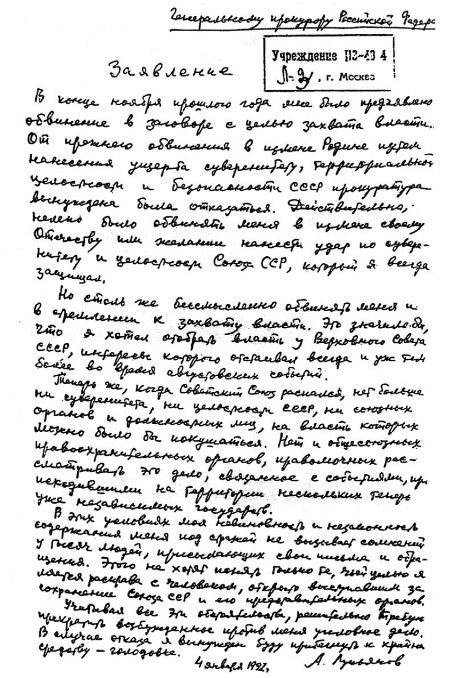 Генеральному прокурору Российской Федера
Учреждение ИЗ-48 4
г. Москва
Заявление
В конце ноября прошлого года мне было предъявлено
обвинение в заговоре с целью захвата власти.
От прежнего обвинения в измене Родине путем
нанесения ущерба суверенитету, территориальной
целостности и безопасности СССР прокуратура
вынуждена была отказаться. Действительно,
нелепо было обвинять меня в измене своему
Отечеству или желании нанести удар по сувере-
нитету и целостности Союза ССР, который я всегда
защищал.
Но столь же бессмысленно обвинять меня и
в стремлении к захвату власти. Это значило бы,
что я хотел отобрать власть у Верховного Совета
СССР, интересы которого отстаивал всегда и уж тем
более во время августовских событий.
Теперь же, когда Советский Союз распался, нет больше
ни суверенитета, ни целостности СССР, ни союзных
органов и должностных лиц, на власть которых
можно было бы покушаться. Нет и общесоюзных
правоохранительных органов, правомочных рас-
сматривать это дело, связанное с событиями, про
исходившими на территории нескольких теперь
уже независимых государств.
В этих условиях моя невиновность и незаконность
содержания меня под стражей не вызывает сомнений
у тысяч людей, присылающих свои письма и обра-
щения. Этого не хотят понять только те, чьей целью я
ляется расправа с человеком, открыто выступавшим за
сохранение Союза ССР и его представительных органов.
Учитывая все эти обстоятельства, решительно требую
прекратить возбужденное против меня уголовное дело.
В случае отказа я вынужден буду прибегнуть к крайне
средству – голодовке.
4 января 1992. А. Лукьянов